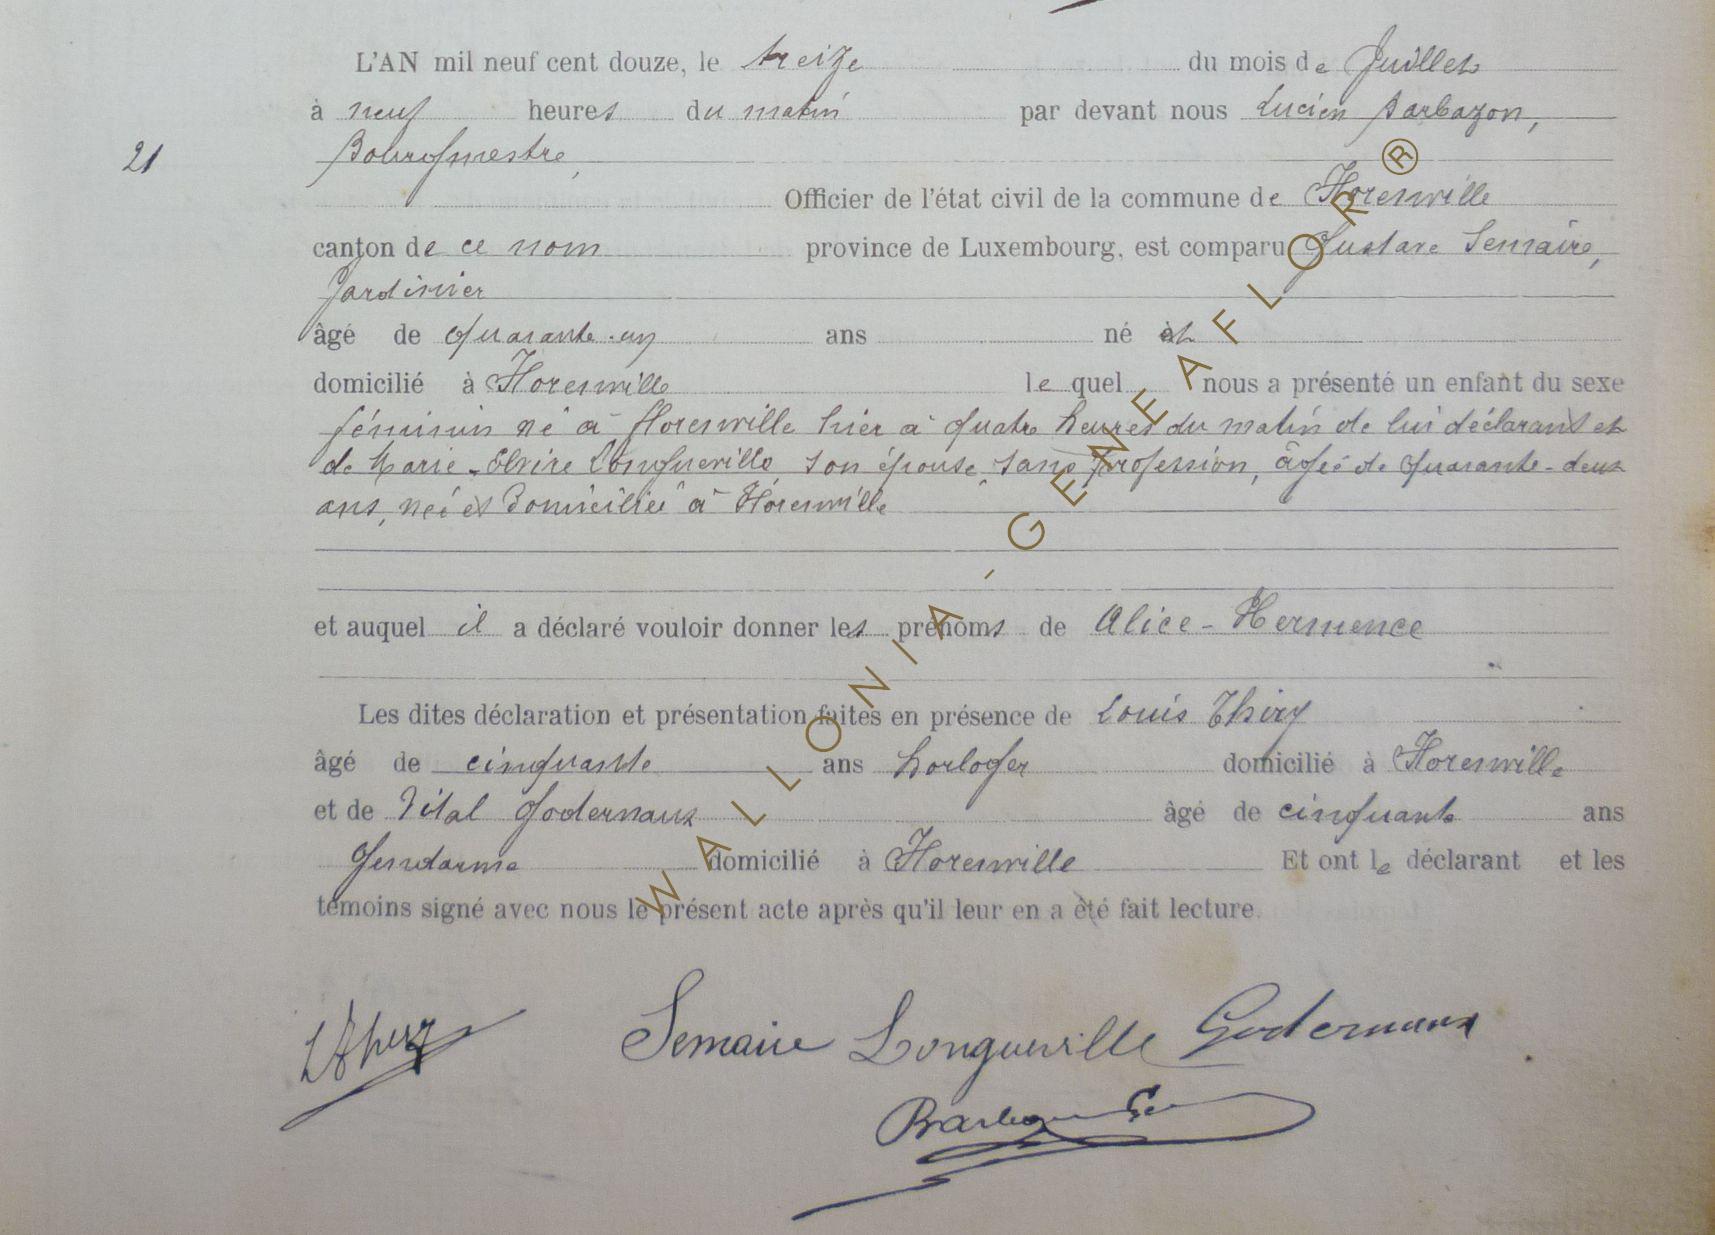 L'AN mil neuf cent douze, le treize du mois de Juillet
à neuf heures du matin par devant nous Lucien Barbazon,
21
Bourgmestre,
Officier de l'état civil de la commune de Florenville
canton de ce nom province de Luxembourg, est comparu Gustave Semaire,
Jardinier
âgé de quarante-un ans né et
domicilié à Florenville le quel nous a présenté un enfant du sexe
féminin né à Florenville hier à quatre heures du matin de lui déclarant et
de Marie-Elvire Longueville son épouse, sans profession, âgée de quarante-deux
ans, née et domiciliée à Florenville
et auquel il a déclaré vouloir donner les prénoms de Alice-Hermence
Les dites déclaration et présentation faites en présence de Louis Thiry
âgé de cinquante ans horloger domicilié à Florenville
et de Vital Godernaux âgé de cinquante ans
Gendarme domicilié à Florenville Et ont le déclarant et les
témoins signé avec nous le présent acte après qu'il leur en a èté fait lecture.
LThiry Semaire Longueville Godernaux
WALLONIA - GENEAFLOR ®